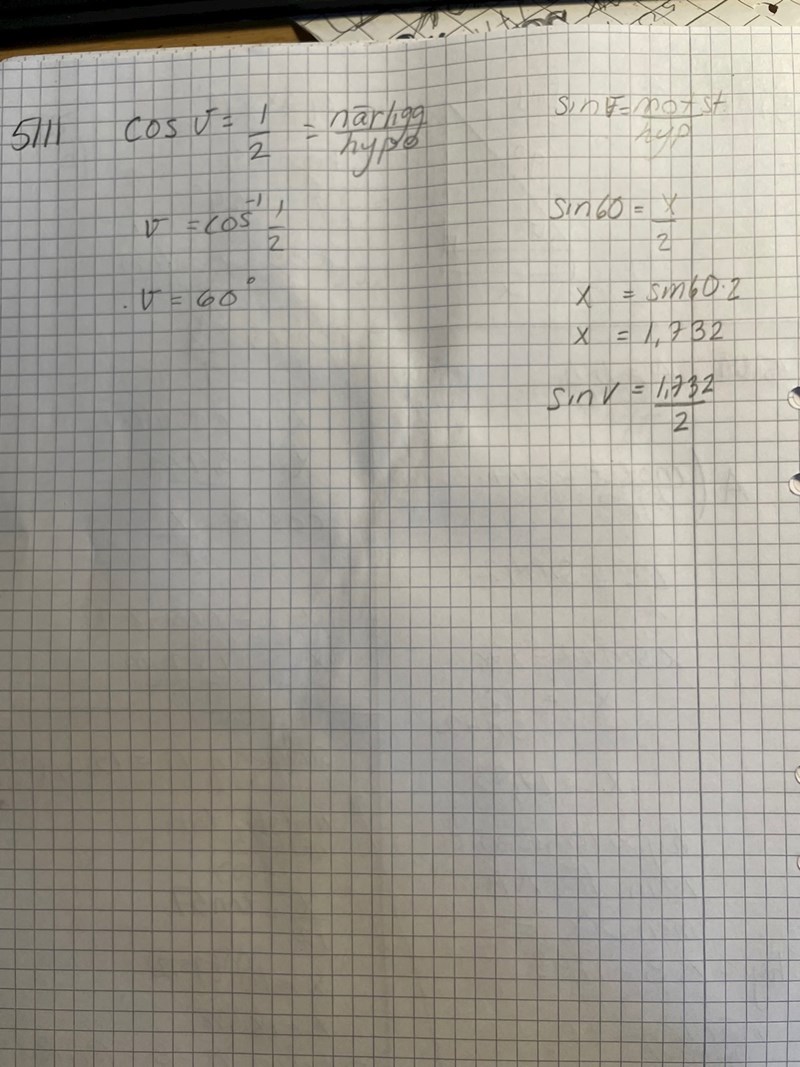 5111 cos v = 1/2 = närligg/hypo
v = cos⁻¹ 1/2
v = 60°
sin v = motst/hyp
sin60 = x/2
x = sin60·2
x = 1,732
sin v = 1,732/2